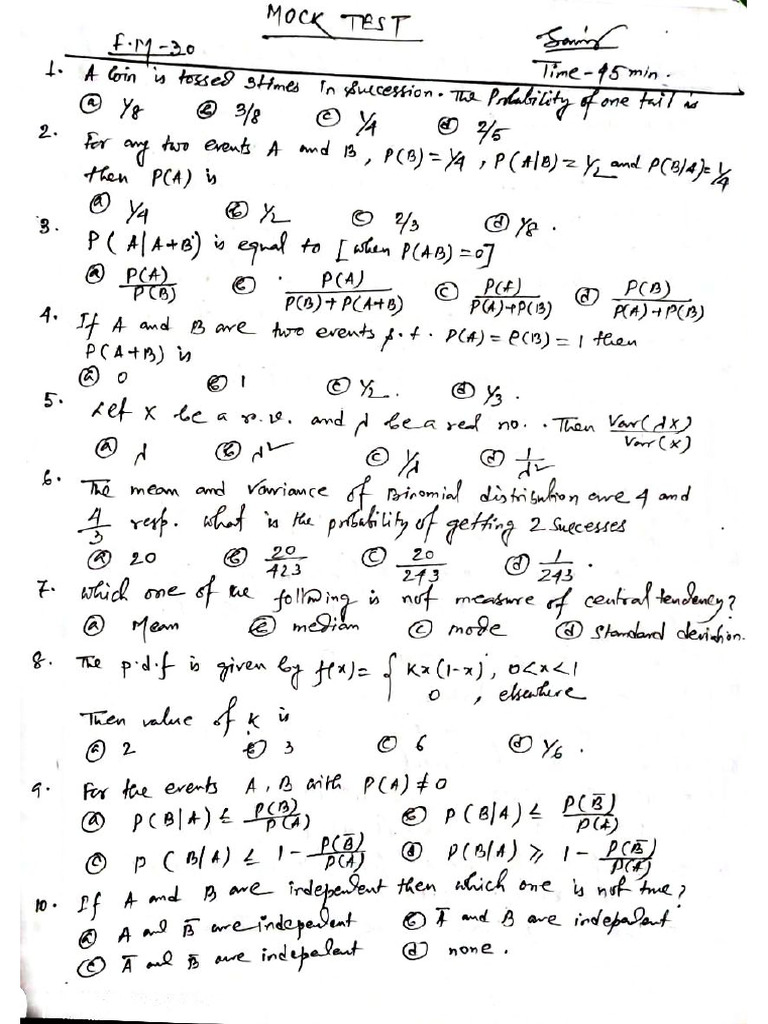 MOCK TEST
F.M-30
Time-45min.
1. A Coin is tossed 3times in succession. The Probability of one tail is
ⓐ 1/8 ⓑ 3/8 ⓒ 1/4 ⓓ 2/5
2. For any two events A and B, P(B)=1/4, P(A|B)=1/2 and P(B|A)=1/4
then P(A) is
ⓐ 1/4 ⓑ 1/2 ⓒ 2/3 ⓓ 1/8.
3. P(A|A+B) is equal to [when P(AB)=0]
ⓐ P(A)/P(B) ⓑ P(A)/P(B)+P(A+B) ⓒ P(A)/P(A)+P(B) ⓓ P(B)/P(A)+P(B)
4. If A and B are two events s.t. P(A)=P(B)=1 then
P(A+B) is
ⓐ 0 ⓑ 1 ⓒ 1/2. ⓓ 1/3.
5. Let X be a r.v. and λ be a real no.. Then Var(λX)/Var(X)
ⓐ λ ⓑ λ² ⓒ 1/λ ⓓ 1/λ²
6. The mean and variance of Binomial distribution are 4 and
4/3 resp. what is the probability of getting 2 successes
ⓐ 20 ⓑ 20/423 ⓒ 20/243 ⓓ 1/243.
7. which one of the following is not measure of central tendency?
ⓐ Mean ⓑ median ⓒ mode ⓓ standard deviation.
8. The p.d.f is given by f(x)= { Kx(1-x), 0<x<1
0, elsewhere
Then value of K is
ⓐ 2 ⓑ 3 ⓒ 6 ⓓ 1/6.
9. For the events A, B with P(A)≠0
ⓐ P(B|A) ≤ P(B)/P(A) ⓑ P(B|A) ≤ P(B̄)/P(A)
ⓒ P(B|A) ≤ 1 - P(B̄)/P(A) ⓓ P(B|A) ≥ 1 - P(B̄)/P(A)
10. If A and B are independent then which one is not true?
ⓐ A and B̄ are independent ⓑ Ā and B are independent
ⓒ Ā and B̄ are indepelent ⓓ none.